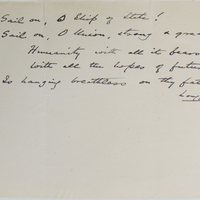 Sail on, O Ship of State!
Sail on, O Union, strong & grea
Humanity with all its fears
With all the hopes of futur
Is hanging breathless on thy fate
Lon